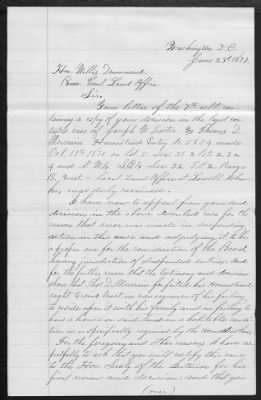 Washington D.C.
June 23d 1873.
Hon Willis Drummond
Com. Genl. Land Office.
Sir,
Your letter of the 7th ult. con
taining a copy of your decision in the land con
tested case of Joseph W. Foster vs Thomas D.
Murrin Homestead Entry No made
Oct. 18th 1871 on Lot
and
West Local Land Office at
has been duly received.
I have now to appeal from your said
decision in the above described case for the
reason that errors
action in this case and
a proper one for the consideration of the Board
having jurisdiction of suspended entries. And
for the further reason that the testimony and
shows that Thos D. Murrin forfeited his Homestead
right to said tract in consequence of his failing
to reside upon it with his family and in failing to
have a house on said land in a habitable condi
tion as is specifically required by the Homestead law
For the foregoing and other reasons I have res
pectfully to ask that you will certify this case
to the Hon. Secty of the Interior for his
final review and decision; and that you
(over)